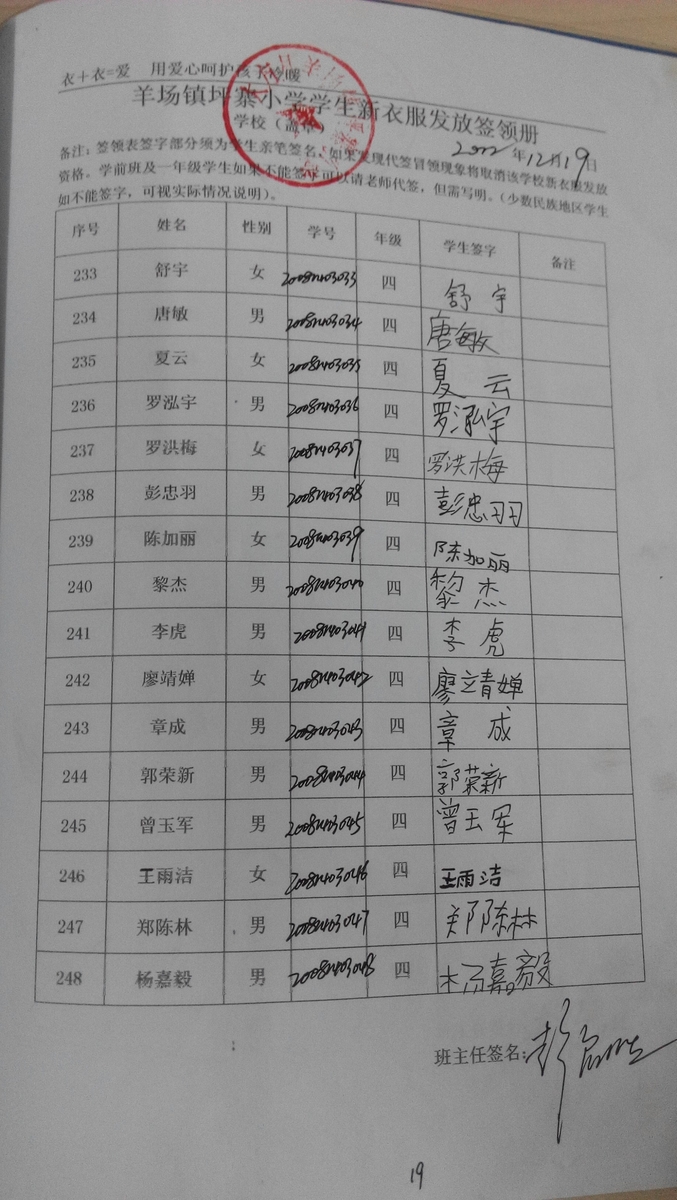 衣+衣=爱 用爱心呵护孩子冷暖
羊场镇坪寨小学学生新衣服发放签领册
学校（盖章） 年12月19日
备注：签领表签字部分须为学生亲笔签名，如果发现代签冒领现象将取消该学校新衣服发放
资格。学前班及一年级学生如果不能签字可以请老师代签，但需写明。（少数民族地区学生
如不能签字，可视实际情况说明）。
序号 姓名 性别 学号 年级 学生签字 备注
233 舒宇 女 20081403033 四 舒宇
234 唐敏 男 20081403034 四 唐敏
235 夏云 女 20081403035 四 夏云
236 罗泓宇 男 20081403036 四 罗泓宇
237 罗洪梅 女 20081403037 四 罗洪梅
238 彭忠羽 男 20081403038 四 彭忠羽
239 陈加丽 女 20081403039 四 陈加丽
240 黎杰 男 20081403040 四 黎杰
241 李虎 男 20081403041 四 李虎
242 廖靖婵 女 20081403042 四 廖靖婵
243 章成 男 20081403043 四 章成
244 郭荣新 男 20081403044 四 郭荣新
245 曾玉军 男 20081403045 四 曾玉军
246 王雨洁 女 20081403046 四 王雨洁
247 郑陈林 男 20081403047 四 郑陈林
248 杨嘉毅 男 20081403048 四 杨嘉毅
班主任签名：
19